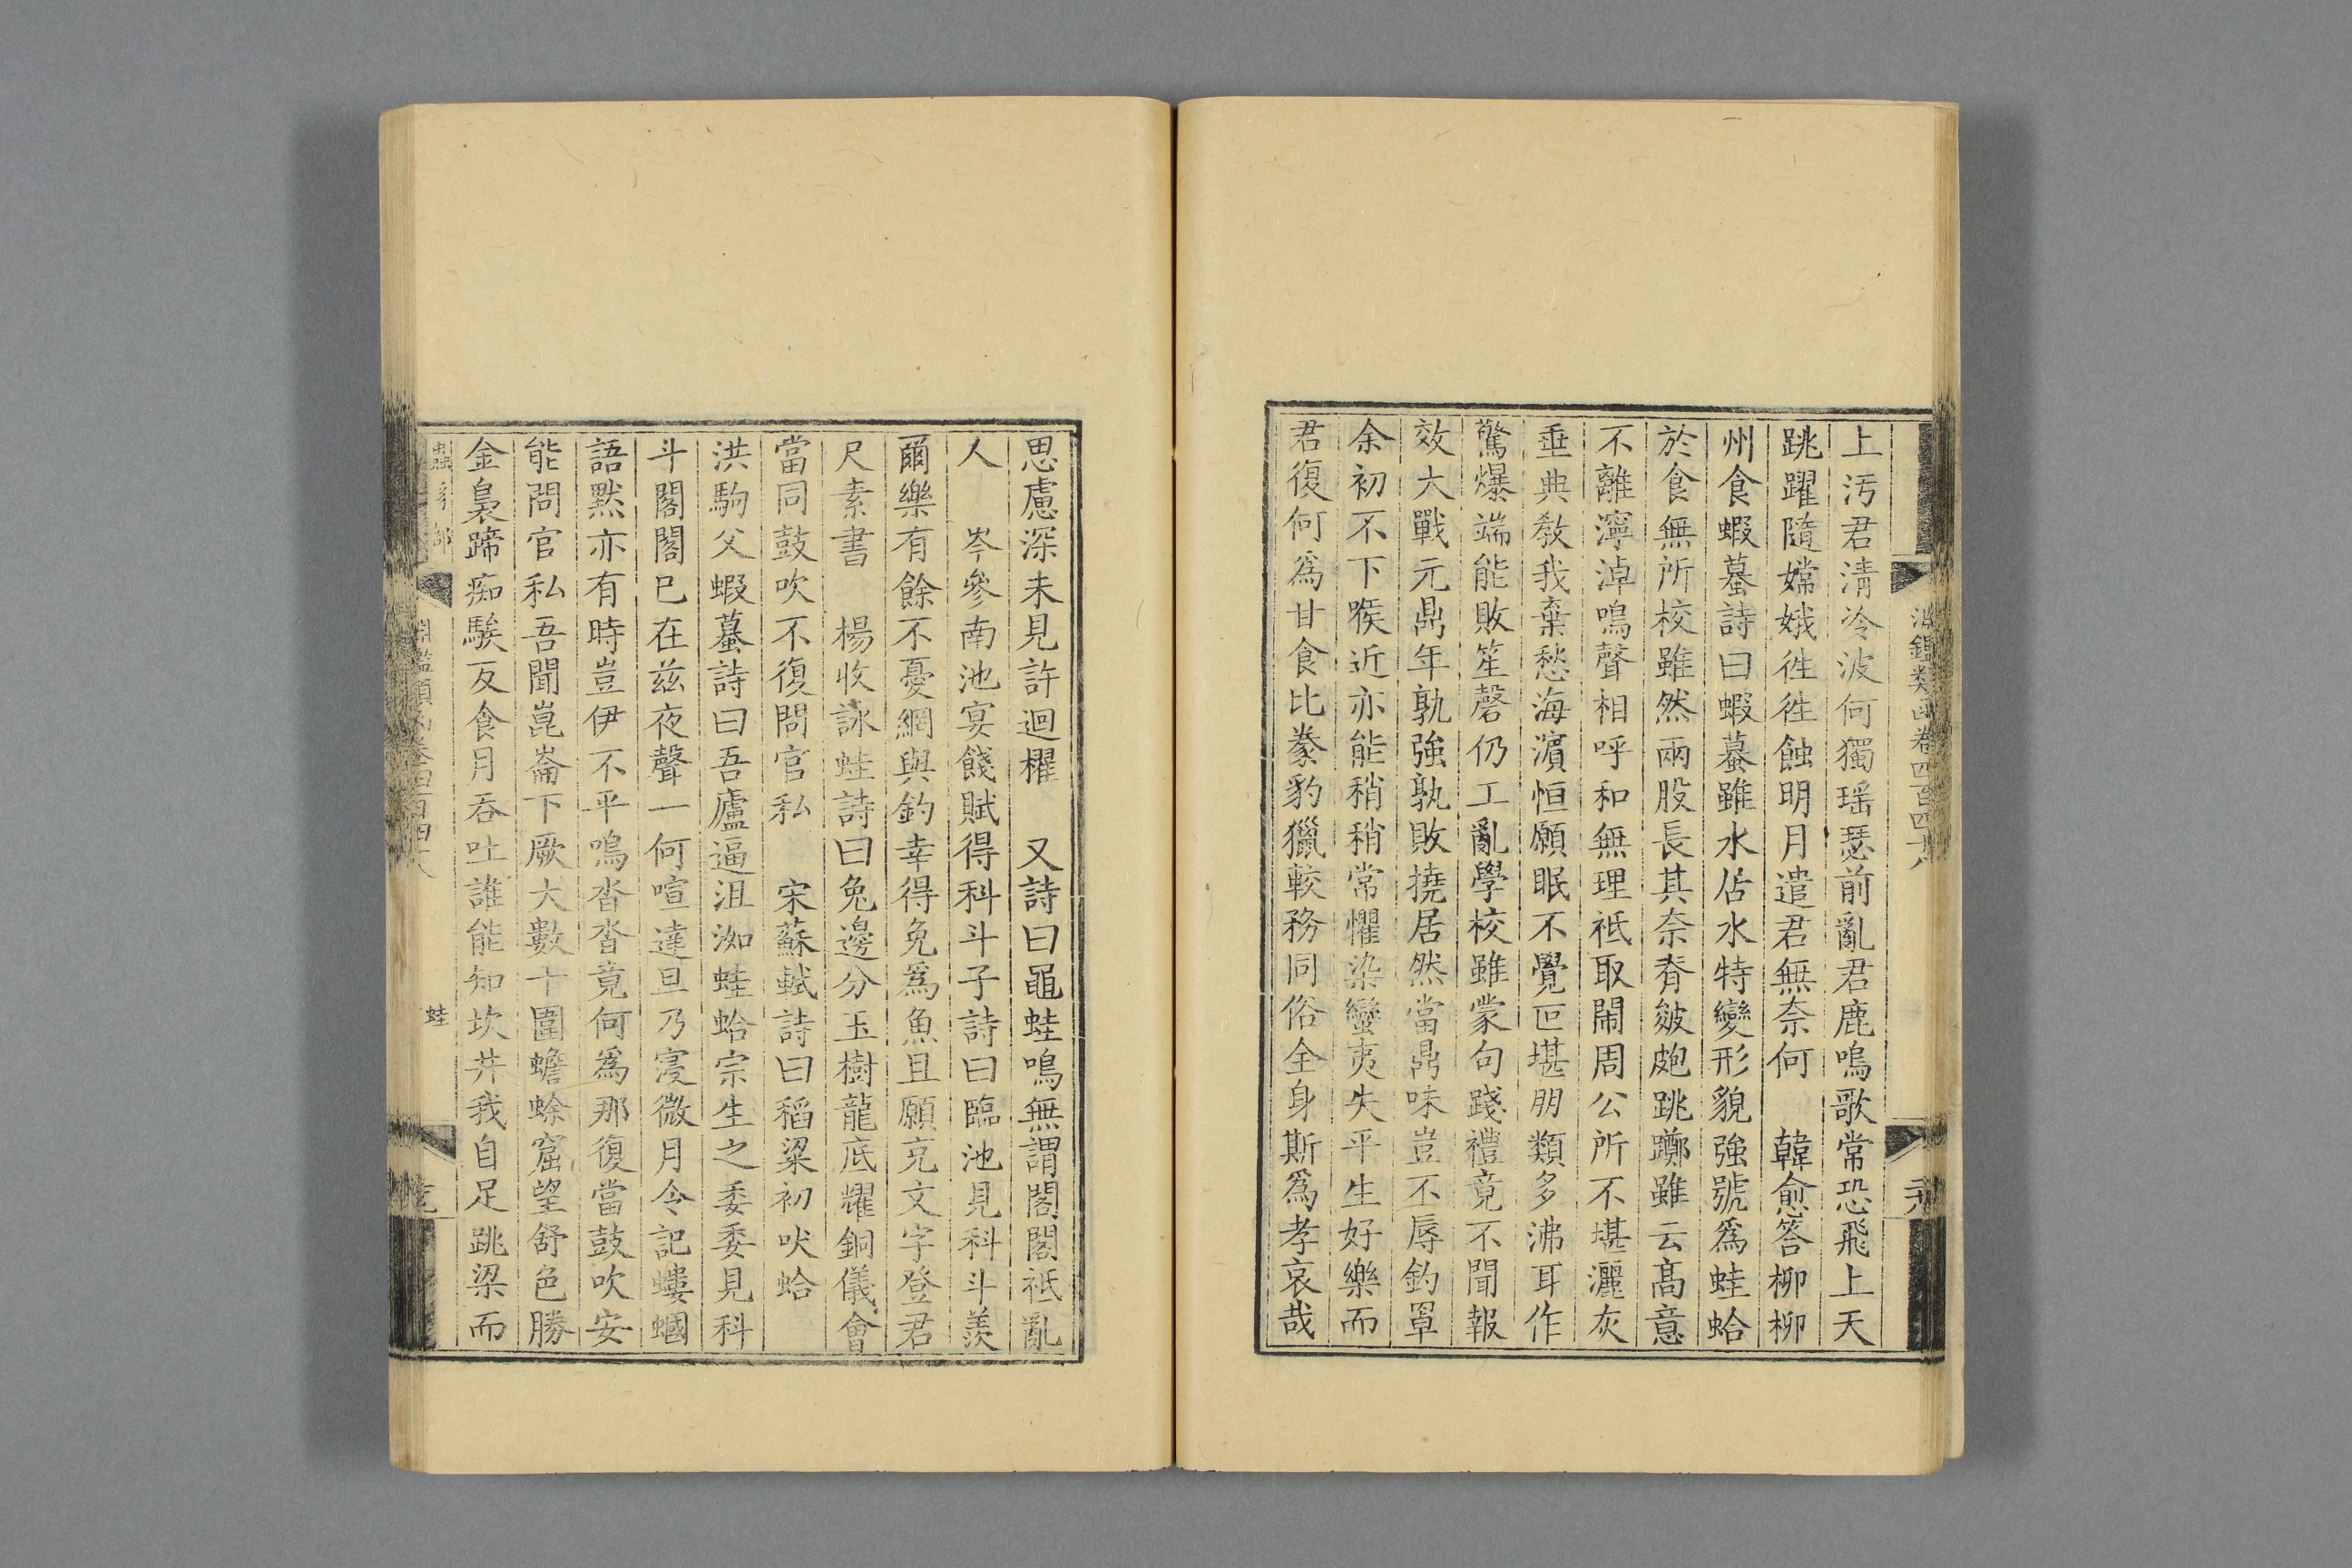 淵鑑類函卷四百四十八
上汚君清冷波何獨瑶瑟前亂君鹿鳴歌常恐飛上天
跳躍隨嫦娥徃徃蝕明月遣君無奈何　韓愈答柳柳
州食蝦蟇詩曰蝦蟇雖水居水特變形貌強號爲蛙蛤
於食無所校雖然兩股長其奈脊皴皰跳躑雖云高意
不離濘淖鳴聲相呼和無理祗取鬧周公所不堪灑灰
垂典敎我棄愁海濵恒願眠不覺叵堪朋類多沸耳作
驚爆端能敗笙磬仍工亂學校雖蒙句踐禮竟不聞報
效大戰元鼎年孰強孰敗撓居然當鼎味豈不辱釣罩
余初不下喉近亦能稍稍常懼染蠻夷失平生好樂而
君復何爲甘食比豢豹獵較務同俗全身斯爲孝哀哉
思慮深未見許迴櫂　又詩曰黽蛙鳴無謂閤閤祗亂
人　岑參南池宴餞賦得科斗子詩曰臨池見科斗羡
爾樂有餘不憂網與釣幸得免爲魚且願充文字登君
尺素書　楊收詠蛙詩曰兔邊分玉樹龍底耀銅儀會
當同鼓吹不復問官私　宋蘇軾詩曰稻粱初吠蛤
洪駒父蝦蟇詩曰吾廬逼沮洳蛙蛤宗生之委委見科
斗閣閣已在兹夜聲一何喧達旦乃寖微月令記螻蟈
語黙亦有時豈伊不平鳴沓沓竟何爲那復當鼓吹安
能問官私吾聞崑崙下厥大數十圍蟾蜍窟望舒色勝
金裊蹄痴騃反食月呑吐誰能知坎井我自足跳梁而
蟲豸部
淵鑑類函卷四百四十八
蛙